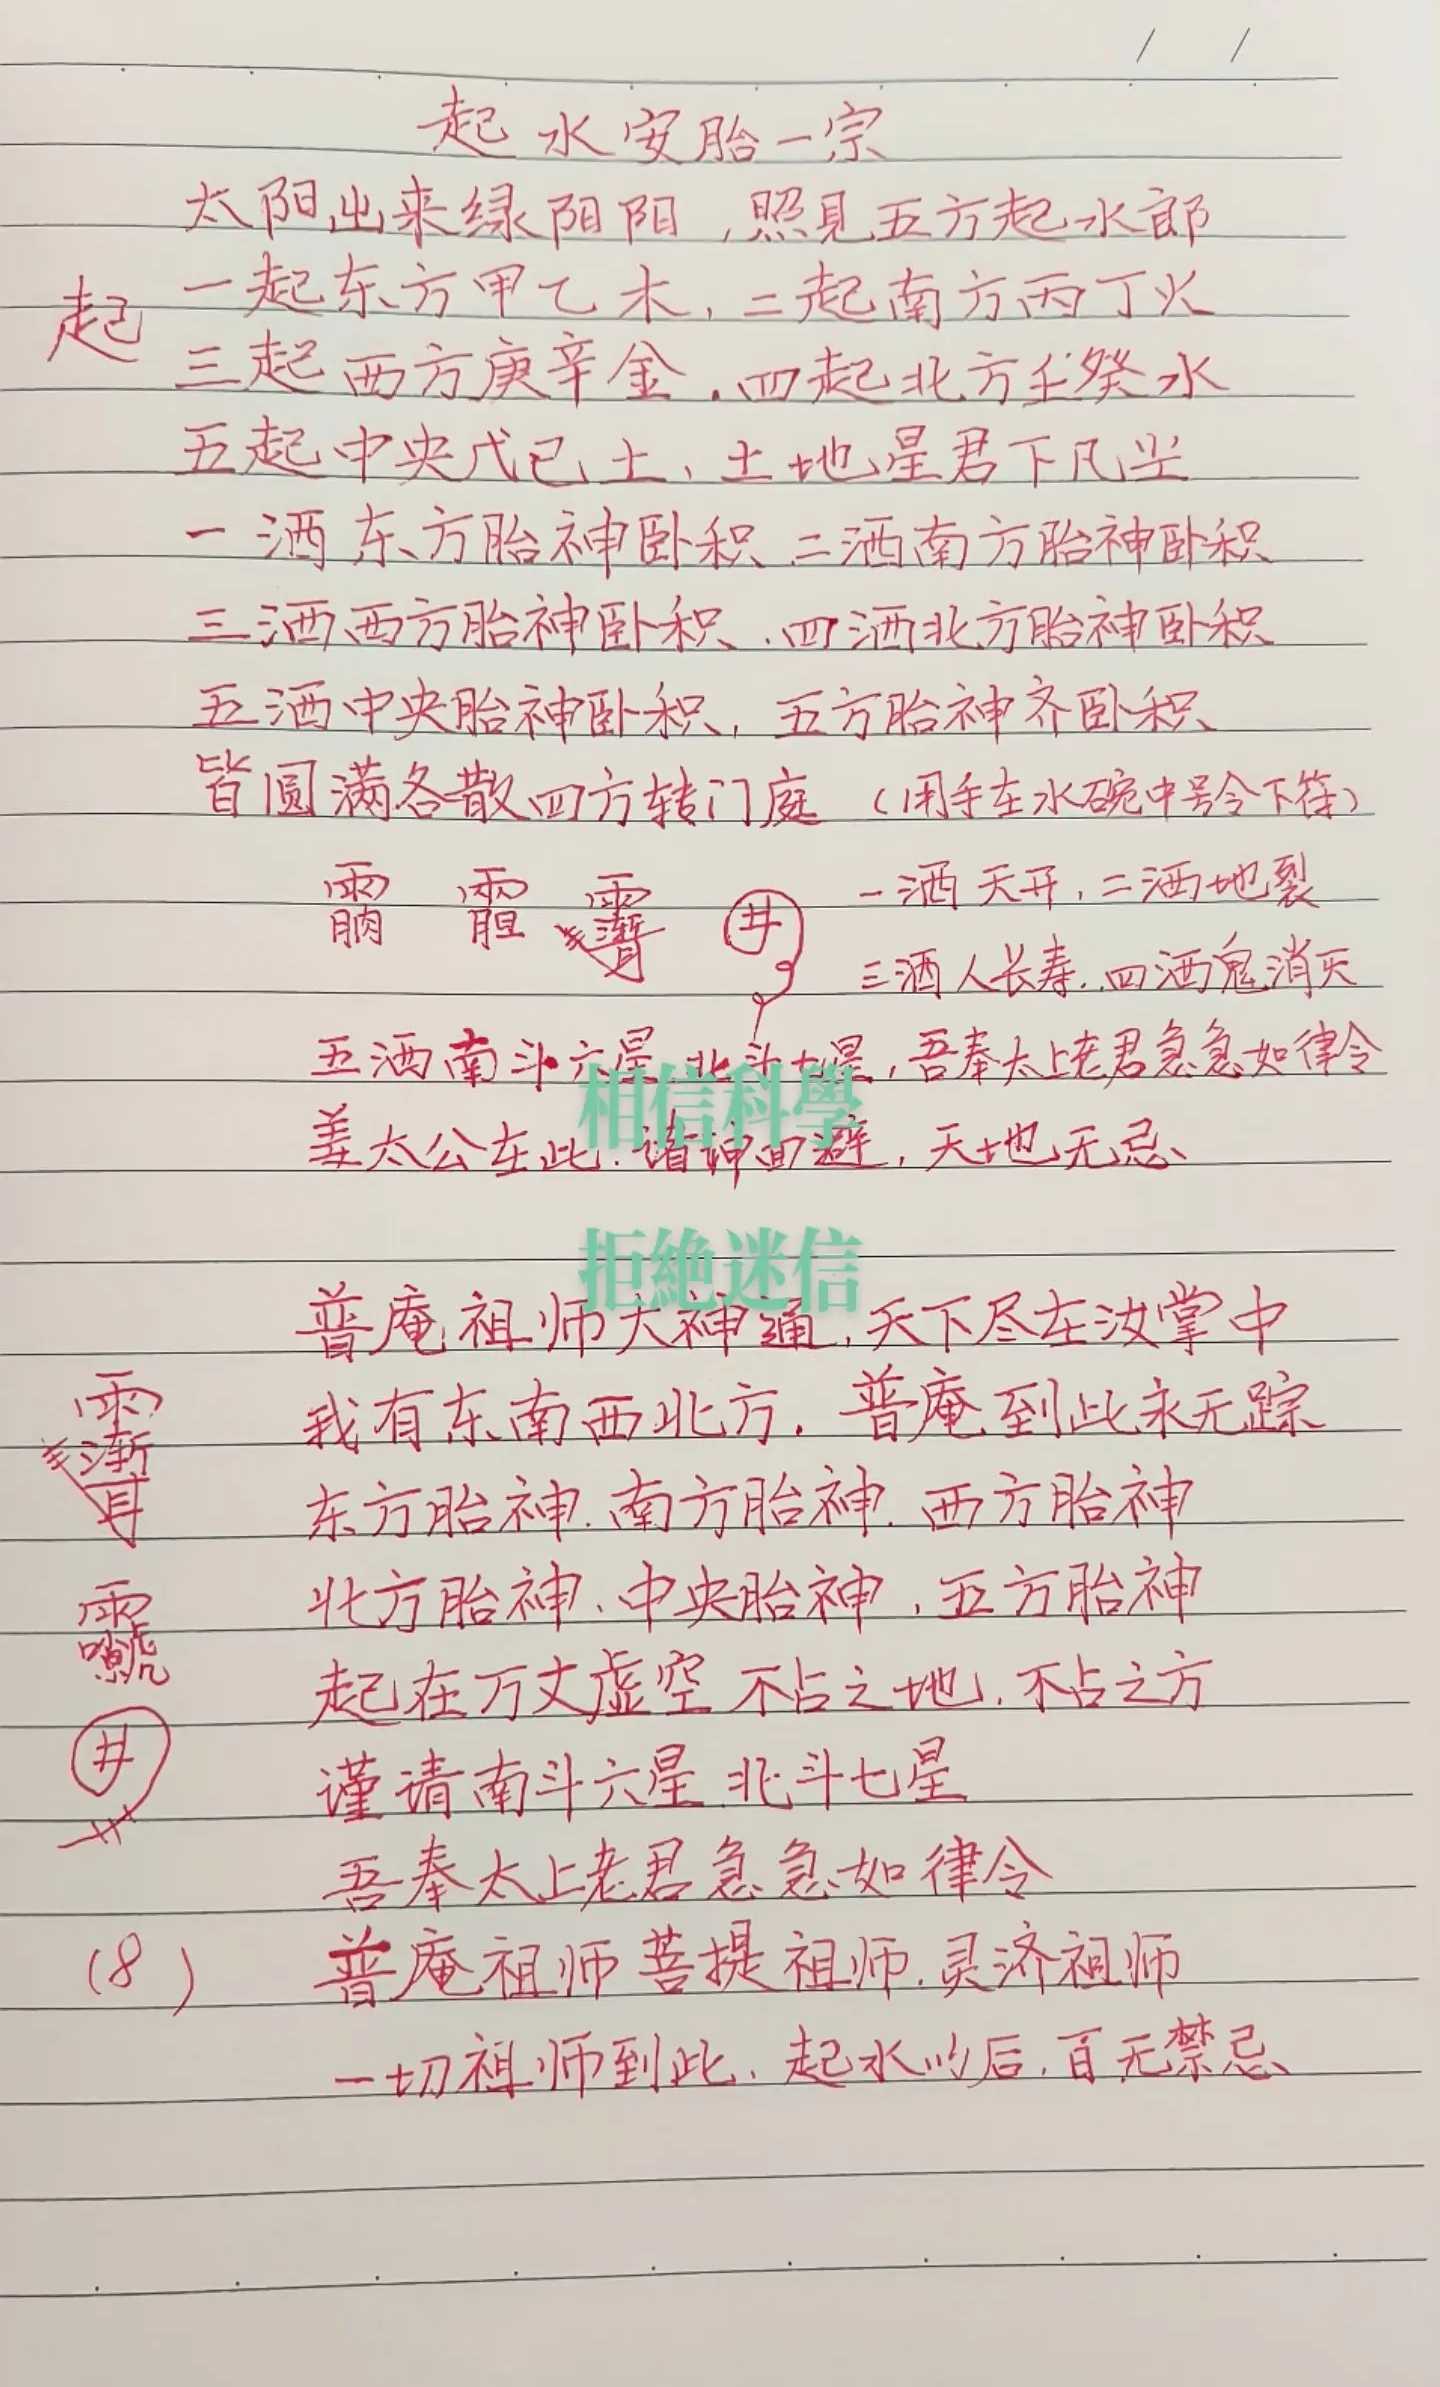 起水安胎一宗
太阳出来绿阳阳，照见五方起水郎
起
一起东方甲乙木，二起南方丙丁火
三起西方庚辛金，四起北方壬癸水
五起中央戊己土，土地星君下凡尘
一洒东方胎神卧积，二洒南方胎神卧积
三洒西方胎神卧积，四洒北方胎神卧积
五洒中央胎神卧积，五方胎神齐卧积
皆圆满各散四方转门庭（用手在水碗中号令下符）
井
一洒天开，二洒地裂
三洒人长寿，四洒鬼消灭
五洒南斗六星，北斗七星，吾奉太上老君急急如律令
相信科學
姜太公在此，诸神回避，天地无忌、
拒絶迷信
普庵祖师大神通，天下尽在汝掌中
我有东南西北方，普庵到此永无踪
东方胎神、南方胎神、西方胎神
北方胎神、中央胎神，五方胎神
起在万丈虚空 不占之地，不占之方
井
谨请南斗六星 北斗七星
吾奉太上老君急急如律令
(8)
普庵祖师菩提祖师、灵济祖师
一切祖师到此，起水以后，百无禁忌、